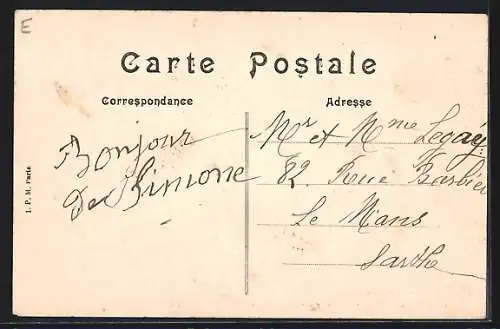 E
Carte Postale
Correspondance
Adresse
Bonjour
de Simone
Mr et Mme Legay
82 Rue Barbier
Le Mans
Sarthe
I. P. M. Paris